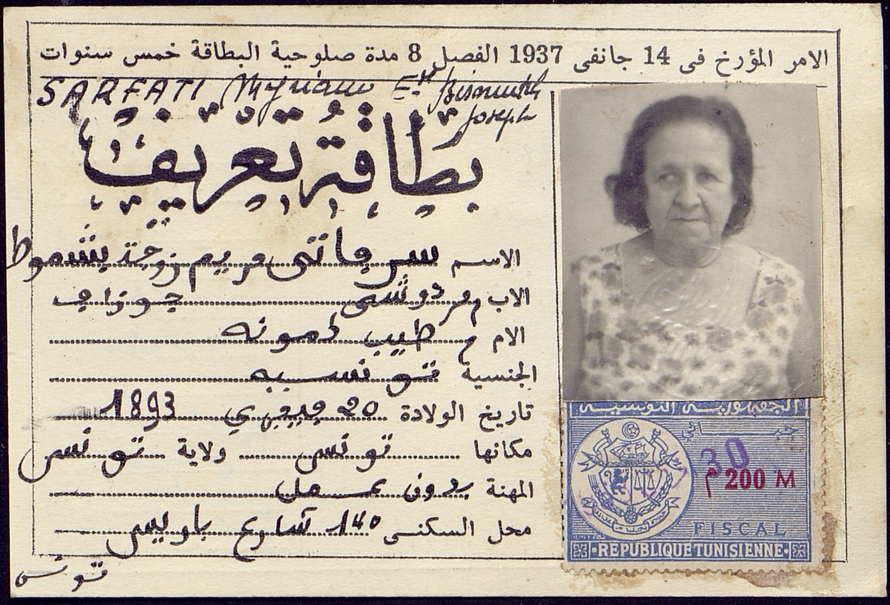 الامر المؤرخ فى 14 جانفى 1937 الفصل 8 مدة صلوحية البطاقة خمس سنوات
SARFATI Myriam Ep Bismuth
Joseph
بطاقة تعريف
الاسم سرفاتى مريم زوجة بشموط
الاب مردوشى جوزاف
الام طيب
الجنسية تونسيه
تاريخ الولادة 20 فيفري 1893
مكانها تونس ولاية تونس
المهنة بدون عمل
محل السكنى 140 شارع باريس
تونس
الجمهورية التونسية
جبائي
30
200 M م
FISCAL
REPUBLIQUE TUNISIENNE